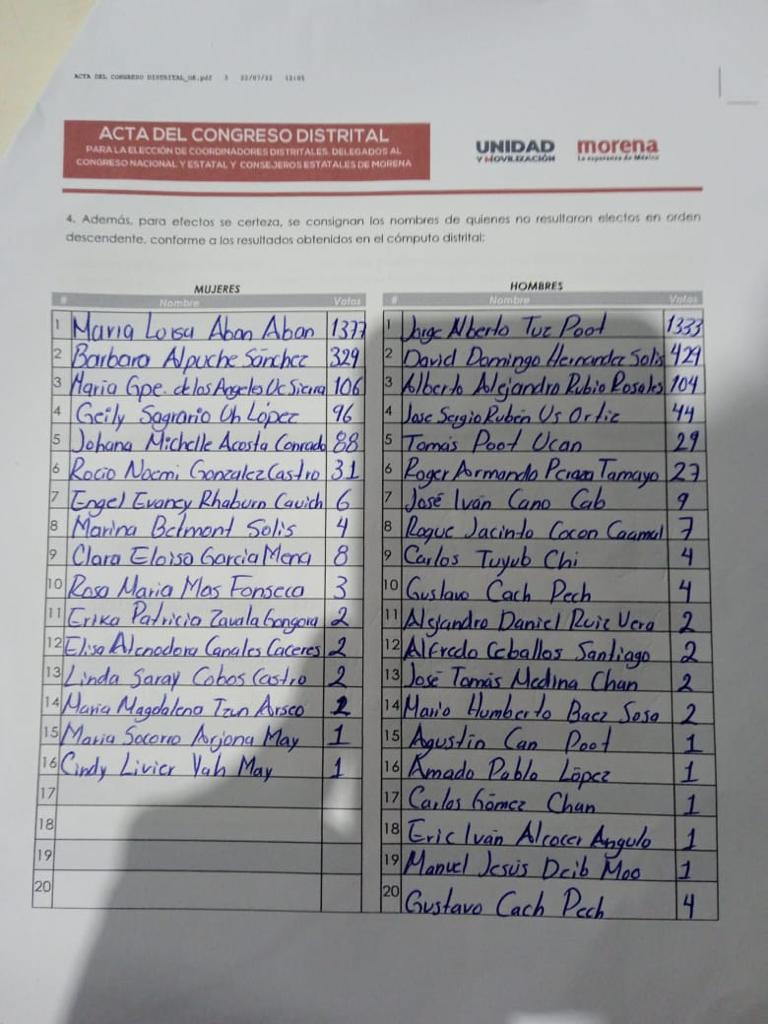 ACTA DEL CONGRESO DISTRITAL_OK.pdf 3 22/07/22 12:05
ACTA DEL CONGRESO DISTRITAL
PARA LA ELECCIÓN DE COORDINADORES DISTRITALES, DELEGADOS AL
CONGRESO NACIONAL Y ESTATAL Y CONSEJEROS ESTATALES DE MORENA
UNIDAD
Y MOVILIZACIÓN
morena
La esperanza de México
4. Además, para efectos se certeza, se consignan los nombres de quienes no resultaron electos en orden
descendente, conforme a los resultados obtenidos en el cómputo distrital:
MUJERES
# Nombre Votos
1 Maria Luisa Aban Aban 1377
2 Barbara Alpuche Sánchez 329
3 Maria Gpe. de los Angeles Uc Sierra 106
4 Geily Sagrario Uh López 96
5 Johana Michelle Acosta Conrado 88
6 Rocio Noemi Gonzalez Castro 31
7 Engel Evancy Rhaburn Cauich 6
8 Marina Belmont Solis 4
9 Clara Eloisa Garcia Mena 8
10 Rosa Maria Mas Fonseca 3
11 Erika Patricia Zavala Gongora 2
12 Elisa Canales Caceres 2
13 Linda Saray Cobos Castro 2
14 Maria Magdalena Tzun 2
15 Maria Socorro Arjona May 1
16 Cindy Livier Yah May 1
17
18
19
20
HOMBRES
# Nombre Votos
1 Jorge Alberto Tuz Poot 1333
2 David Domingo Hernandez Solis 429
3 Alberto Alejandro Rubio Rosales 104
4 Jose Sergio Rubén Us Ortiz 44
5 Tomás Poot Ucan 29
6 Roger Armando Peraza Tamayo 27
7 José Iván Cano Cab 9
8 Roque Jacinto Cocon Caamal 7
9 Carlos Tuyub Chi 4
10 Gustavo Cach Pech 4
11 Alejandro Daniel Ruiz Vera 2
12 Alfredo Ceballos Santiago 2
13 José Tomás Medina Chan 2
14 Mario Humberto Baez Sosa 2
15 Agustin Can Poot 1
16 Amado Pablo López 1
17 Carlos Gómez Chan 1
18 Eric Iván Alcocer Angulo 1
19 Manuel Jesús Dcib Moo 1
20 Gustavo Cach Pech 4